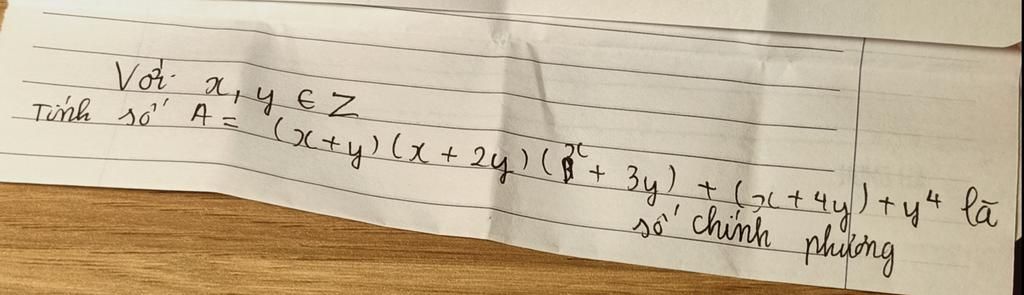 Với x, y ∈ Z
Tính số A = (x+y)(x + 2y)(x + 3y) + (x + 4y) + y⁴ là
số chính phương